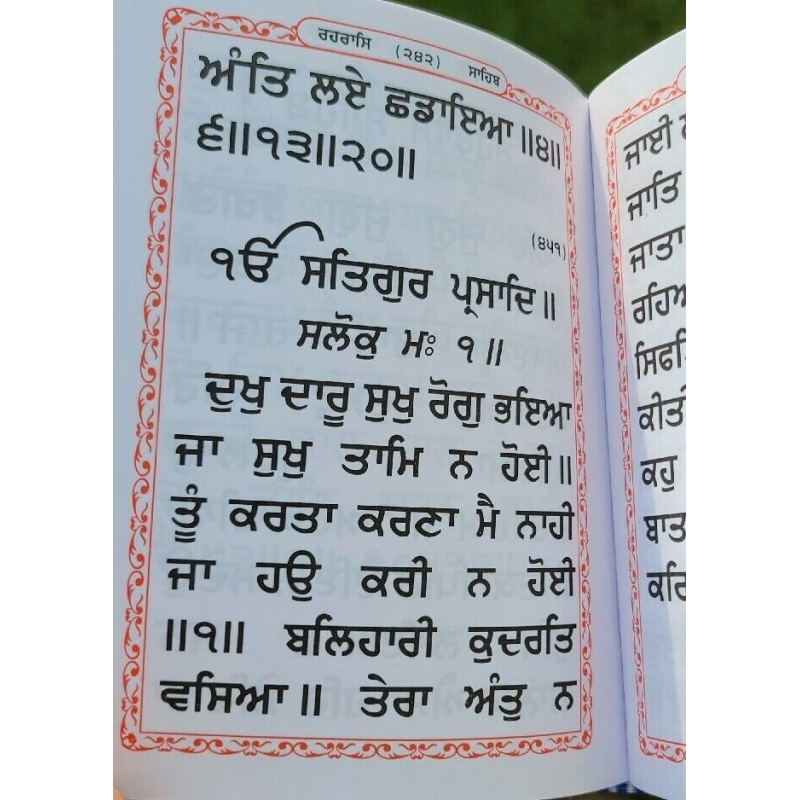 ਰਹਰਾਸਿ (੨੪੨) ਸਾਹਿਬ
ਅੰਤਿ ਲਏ ਛਡਾਇਆ ॥੪॥
੬॥੧੩॥੨੦॥
(੪੫੧)
ੴ ਸਤਿਗੁਰ ਪ੍ਰਸਾਦਿ ॥
ਸਲੋਕੁ ਮਃ ੧ ॥
ਦੁਖੁ ਦਾਰੂ ਸੁਖੁ ਰੋਗੁ ਭਇਆ
ਜਾ ਸੁਖੁ ਤਾਮਿ ਨ ਹੋਈ॥
ਤੂੰ ਕਰਤਾ ਕਰਣਾ ਮੈ ਨਾਹੀ
ਜਾ ਹਉ ਕਰੀ ਨ ਹੋਈ
॥੧॥ ਬਲਿਹਾਰੀ ਕੁਦਰਤਿ
ਵਸਿਆ ॥ ਤੇਰਾ ਅੰਤੁ ਨ
ਜਾਈ
ਜਾਤਿ
ਜਾਤਾ
ਕਹੁ